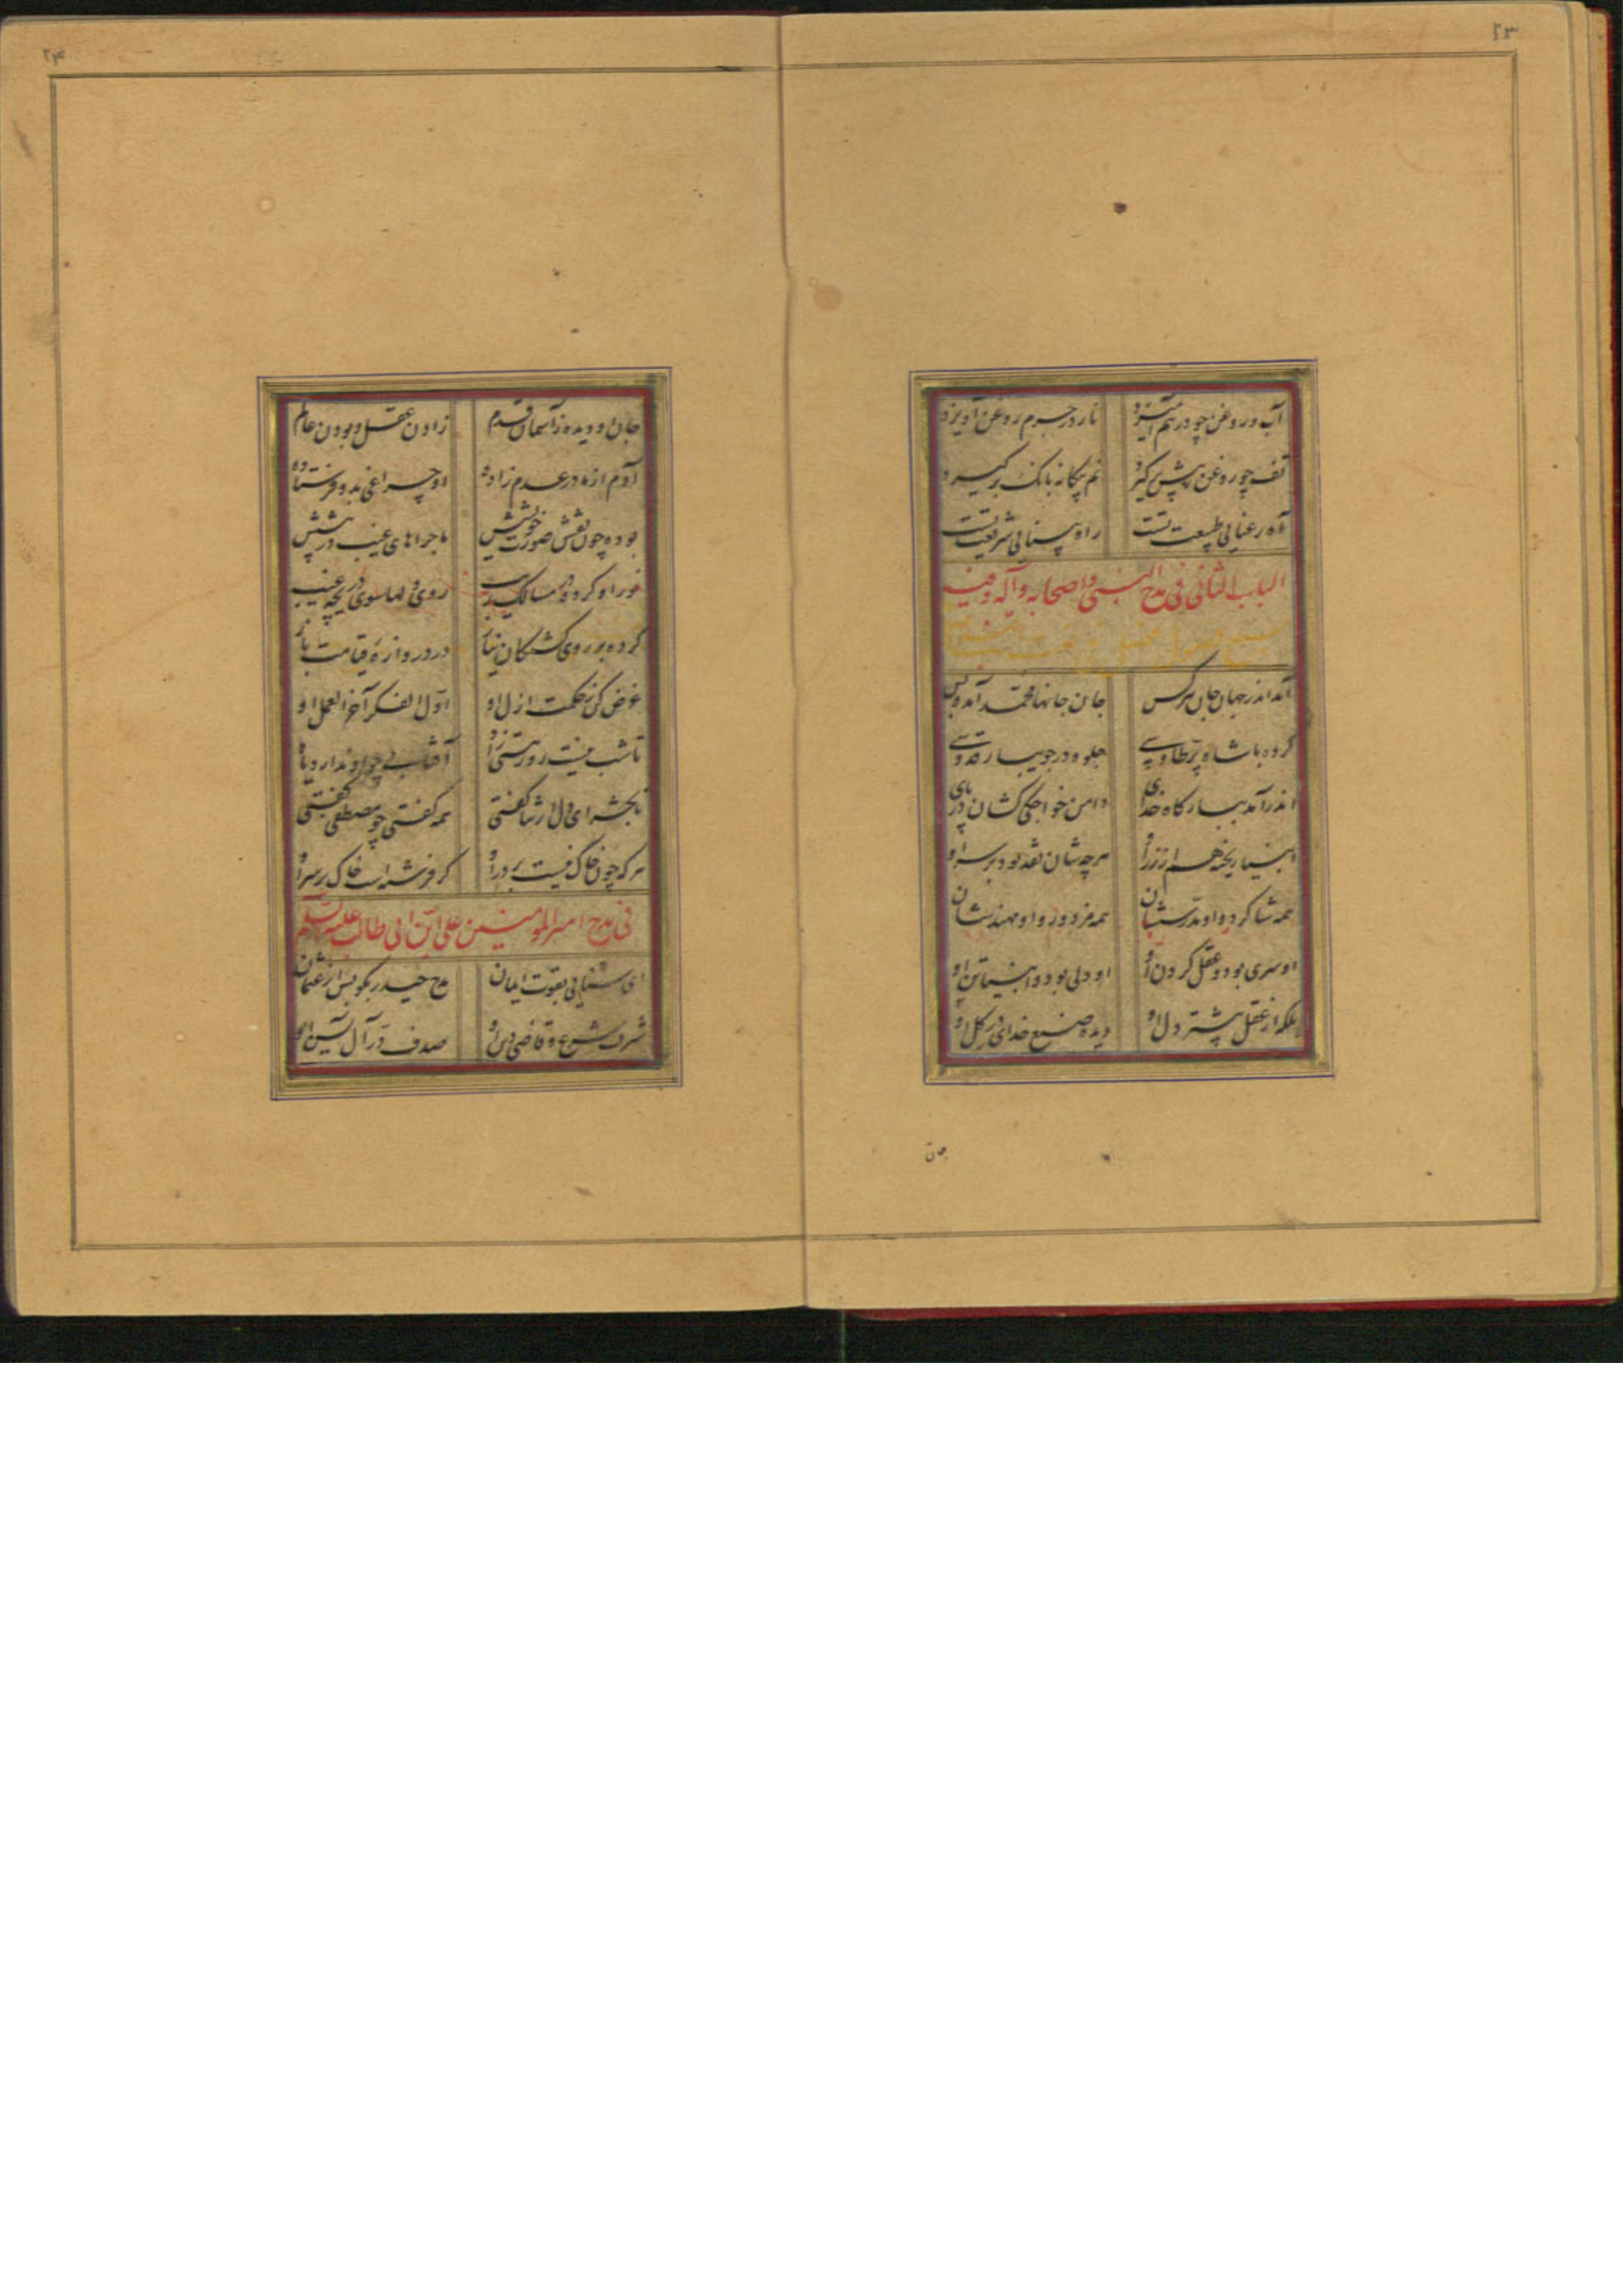 ۲۳
آب و روغن چو در هم آمیزد نار در جرم روغن آویزد
تف چو روغن ز پیش برگیرد نم بیگانه بانگ برگیرد
آه رعنایی طبیعت تست راه بینایی شریعت تست
الباب الثانی فی مدح النبی و اصحابه و آله
آمد اندر جهان جان هر کس جان جانها محمد آمد و بس
کرده با شاه پر طاوسی جلوه در جویبار قدوسی
اندر آمد ببارگاه خدای دامن خواجگی کشان در پای
انبیا ریخته هم از زر او هرچه شان نقد بود بر سر او
همه شاگرد و او مدرسشان همه مزدور و او مهندسشان
او سری بود و عقل گردن او او دلی بود و انبیا تن او
بلکه از عقل پیشتر دل او دیده صنع خدای در گل او
۲۴
جان او دیده ز آسمان قدم زادن عقل و بودن عالم
آدم از مادر عدم زاده او چراغی بدو فرستاده
بوده چون نقش صورت خویشش ماجراهای غیب در پیشش
نور او کرده در مسالک روی دلها سوی دریچه غیب
کرده بر روی کشتگان نیاز در دروازه قیامت باز
غرض کن ز حکمت ازل او اول الفکر آخر العمل او
تا شب نیست روز هستی زاد آفتابی چو او ندارد یاد
تا بحشر ای دل ار ثنا گفتی همه گفتی چو مصطفی گفتی
هر که چون خاک نیست بر در او گر فرشته است خاک بر سر او
فی مدح امیر المومنین علی ابن ابی طالب علیه السلام
ای سنایی بقوت ایمان مدح حیدر بگو پس از عثمان
شرف شرع و قاضی دین او صدف در آل یاسین او